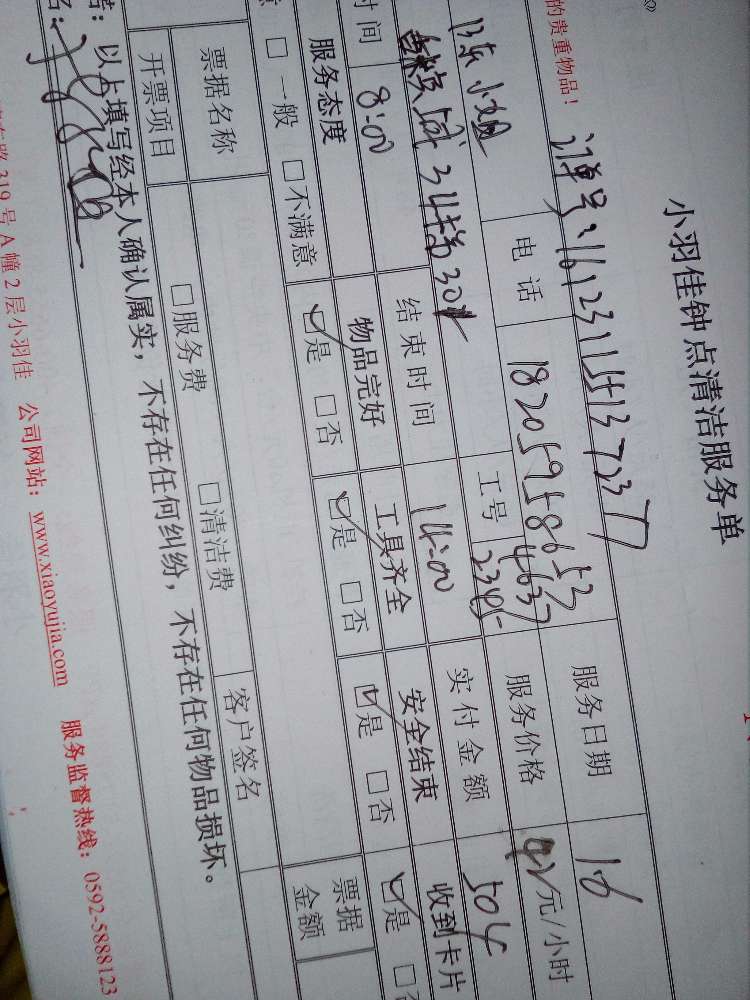 小羽佳钟点清洁服务单
的贵重物品！ 订单号：16123115137237
陈小姐 电话 18205958653 服务日期 16
34栋301 工号 4637 2345 服务价格 42元/小时
时间 8:00 结束时间 14:00 实付金额 504
服务态度 物品完好 工具齐全 安全结束 收到卡片
□一般 □不满意 ☑是 □否 ☑是 □否 ☑是 □否 ☑是 □否
票据名称 客户签名 票据金额
开票项目 □服务费 □清洁费
以上填写经本人确认属实，不存在任何纠纷，不存在任何物品损坏。
路319号A幢2层小羽佳 公司网站：www.xiaoyujia.com 服务监督热线：0592-5888123